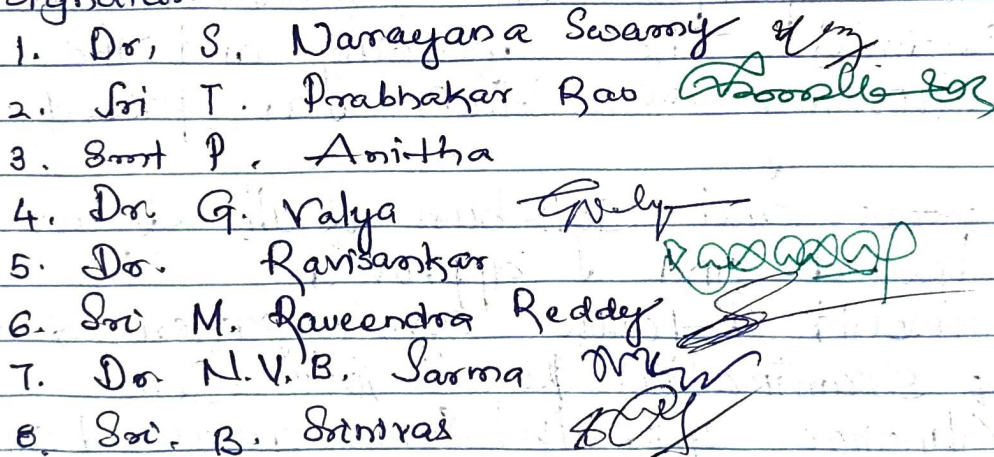 1. Dr, S. Narayana Swamy
2. Sri T. Prabhakar Rao
3. Smt P. Anitha
4. Dr. G. Valya
5. Dr. Ravisankar
6. Sri M. Raveendra Reddy
7. Dr N.V.B. Sarma
8. Sri. B. Srinivas